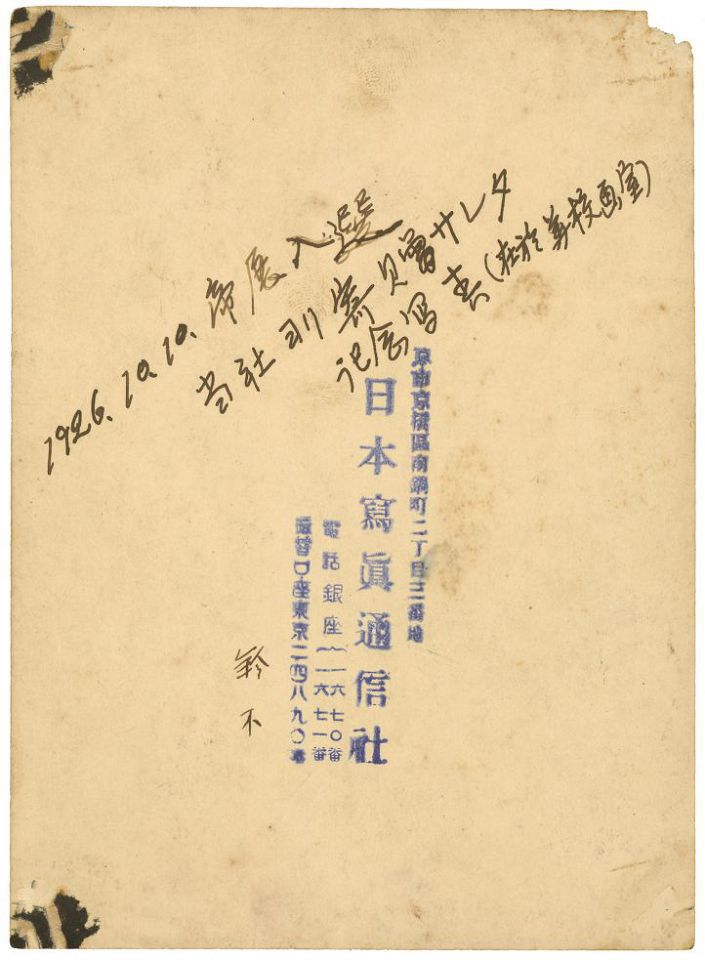 1926.10.10.帝展入選
当社ヨリ寄贈サレタ
記念写真(於美校画室)
京市京橋區南鍋町二丁目三番地
日本寫眞通信社
電話銀座 一六七〇番
一六七一番
振替口座東京二四八九〇番